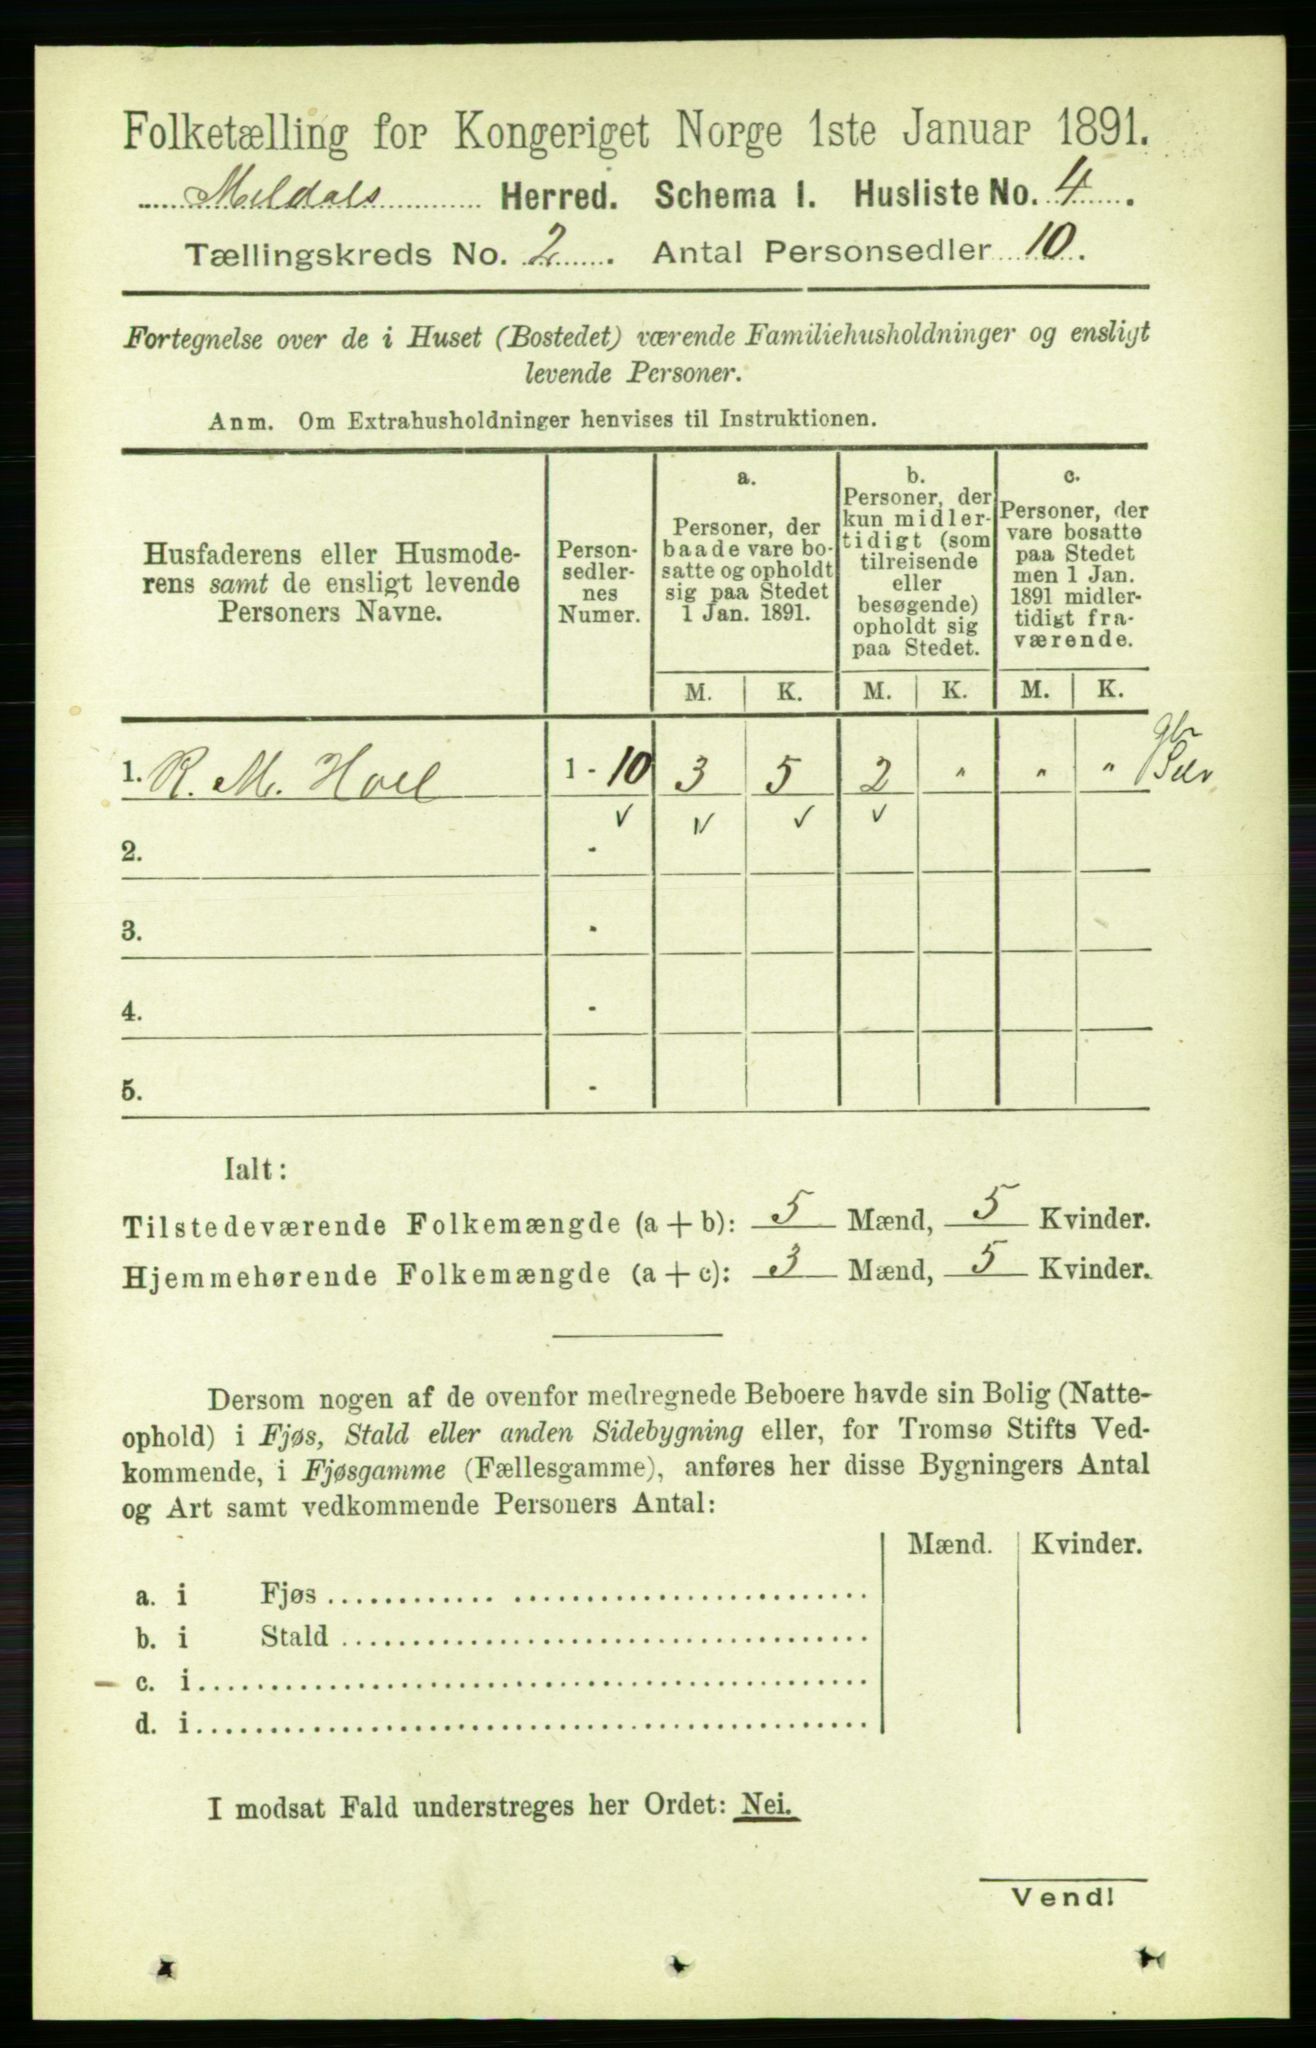 Folketælling for Kongeriget Norge 1ste Januar 1891.
Meldals Herred. Schema I. Husliste No. 4.
Tællingskreds No. 2. Antal Personsedler 10.
Fortegnelse over de i Huset (Bostedet) værende Familiehusholdninger og ensligt
levende Personer.
Anm. Om Extrahusholdninger henvises til Instruktionen.
Husfaderens eller Husmode-
rens samt de ensligt levende
Personers Navne.
Person-
sedler-
nes
Numer.
a.
Personer, der
baade vare bo-
satte og opholdt
sig paa Stedet
1 Jan. 1891.
b.
Personer, der
kun midler-
tidigt (som
tilreisende
eller
besøgende)
opholdt sig
paa Stedet.
c.
Personer, der
vare bosatte
paa Stedet
men 1 Jan.
1891 midler-
tidigt fra-
værende.
M. K. M. K. M. K.
1. R. M. Hoel 1 - 10 3 5 2 " " "
2. -
3. -
4. -
5. -
Ialt:
Tilstedeværende Folkemængde (a + b): 5 Mænd, 5 Kvinder.
Hjemmehørende Folkemængde (a + c): 3 Mænd, 5 Kvinder.
Dersom nogen af de ovenfor medregnede Beboere havde sin Bolig (Natte-
ophold) i Fjøs, Stald eller anden Sidebygning eller, for Tromsø Stifts Ved-
kommende, i Fjøsgamme (Fællesgamme), anføres her disse Bygningers Antal
og Art samt vedkommende Personers Antal:
Mænd. Kvinder.
a. i Fjøs
b. i Stald
c. i
d. i
I modsat Fald understreges her Ordet: Nei.
Vend!